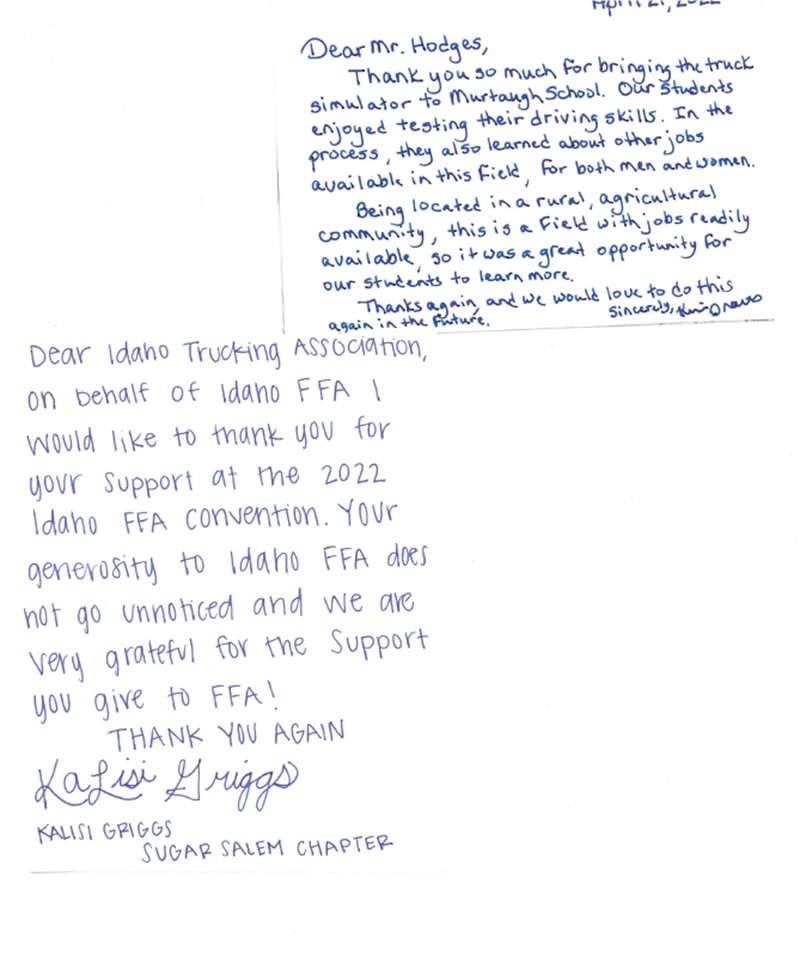 April 21, 2022
Dear Mr. Hodges,
Thank you so much for bringing the truck
simulator to Murtaugh School. Our students
enjoyed testing their driving skills. In the
process, they also learned about other jobs
available in this field, for both men and women.
Being located in a rural, agricultural
community, this is a field with jobs readily
available, so it was a great opportunity for
our students to learn more.
Thanks again, and we would love to do this
again in the future.
Sincerely,
Dear Idaho Trucking Association,
on behalf of Idaho FFA I
would like to thank you for
your support at the 2022
Idaho FFA convention. Your
generosity to Idaho FFA does
not go unnoticed and we are
very grateful for the support
you give to FFA!
THANK YOU AGAIN
KaLisi Griggs
KALISI GRIGGS
SUGAR SALEM CHAPTER